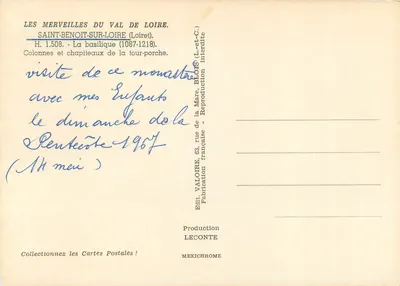 LES MERVEILLES DU VAL DE LOIRE.
SAINT-BENOIT-SUR-LOIRE (Loiret).
H. 1.508. - La basilique (1067-1218).
Colonnes et chapiteaux de la tour-porche.
visite de ce monastère
avec mes Enfants
le dimanche de la
Pentecôte 1967
(14 mai)
Edit. VALOIRE, 63, rue de la Mare, BLOIS (L.-et-C.)
Fabrication française - Reproduction interdite
Production
LECONTE
MEXICHROME
Collectionnez les Cartes Postales !